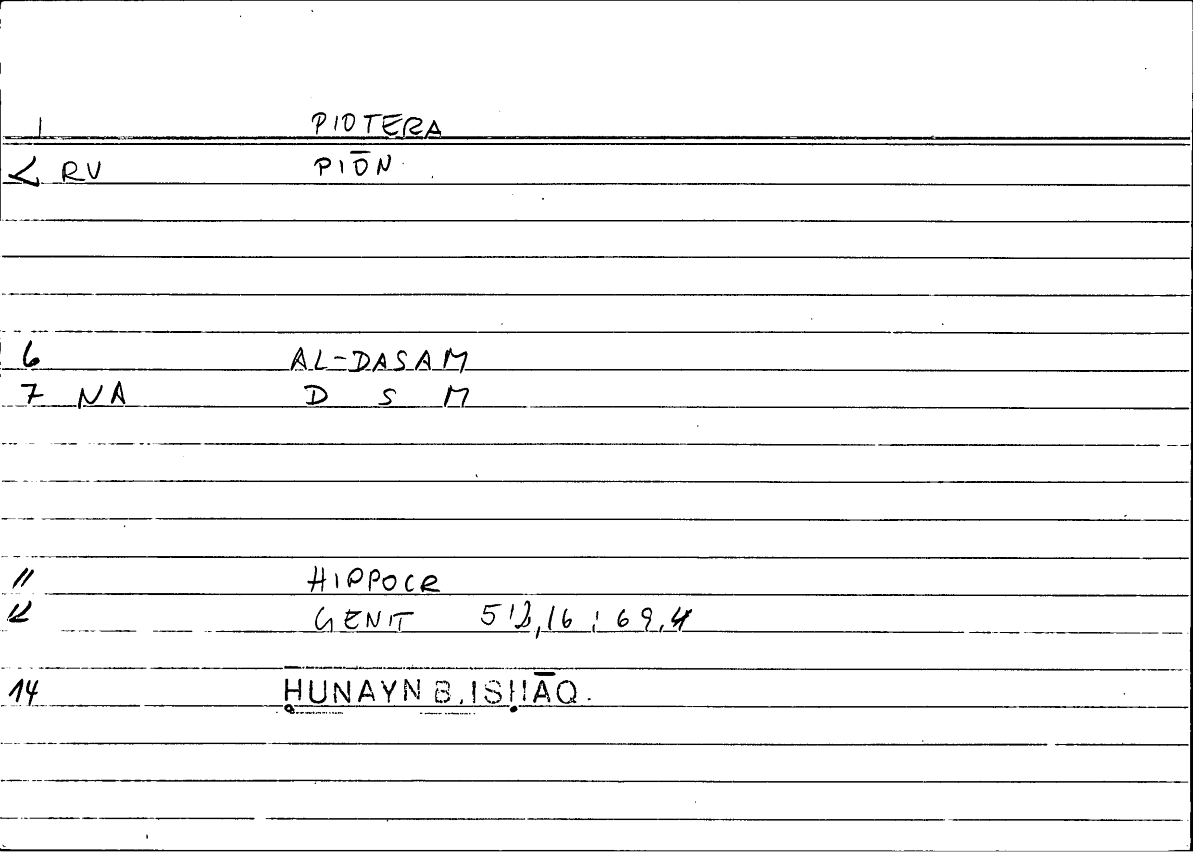 1 PIOTERA
2 RV PIŌN
6 AL-DASAM
7 NA D S M
11 HIPPOCR
12 GENIT 52,16 ; 69,4
14 ḤUNAYN B. ISḤĀQ.